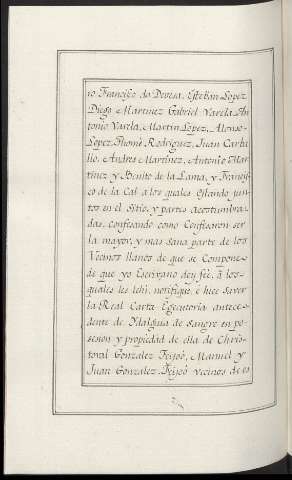 ro Francisco do Devesa, Esteban Lopez
Diego Martinez Gabriel Varela, An
tonio Varela, Martin Lopez, Alonso
Lopez, Thomè Rodriguez, Juan Carba
llo, Andres Martinez, Antonio Mar
tinez y Benito de la Lama, y Francis
co de la Cal a los quales estando jun
tos en el Sitio, y partes acostumbra
das, confesando como Confesaron ser
la mayor, y mas sana parte de los
Vecinos llanos de que se Compone
de que yo Escrivano doy feè, â los
quales les lehi, notifiquè, è hice saver
la Real Carta Egecutoria antece
dente de Ydalguia de sangre en po
sesion y propiedad de ella de Chris
toval Gonzalez Feijoò, Manuel y
Juan Gonzalez Feijoò vecinos de es